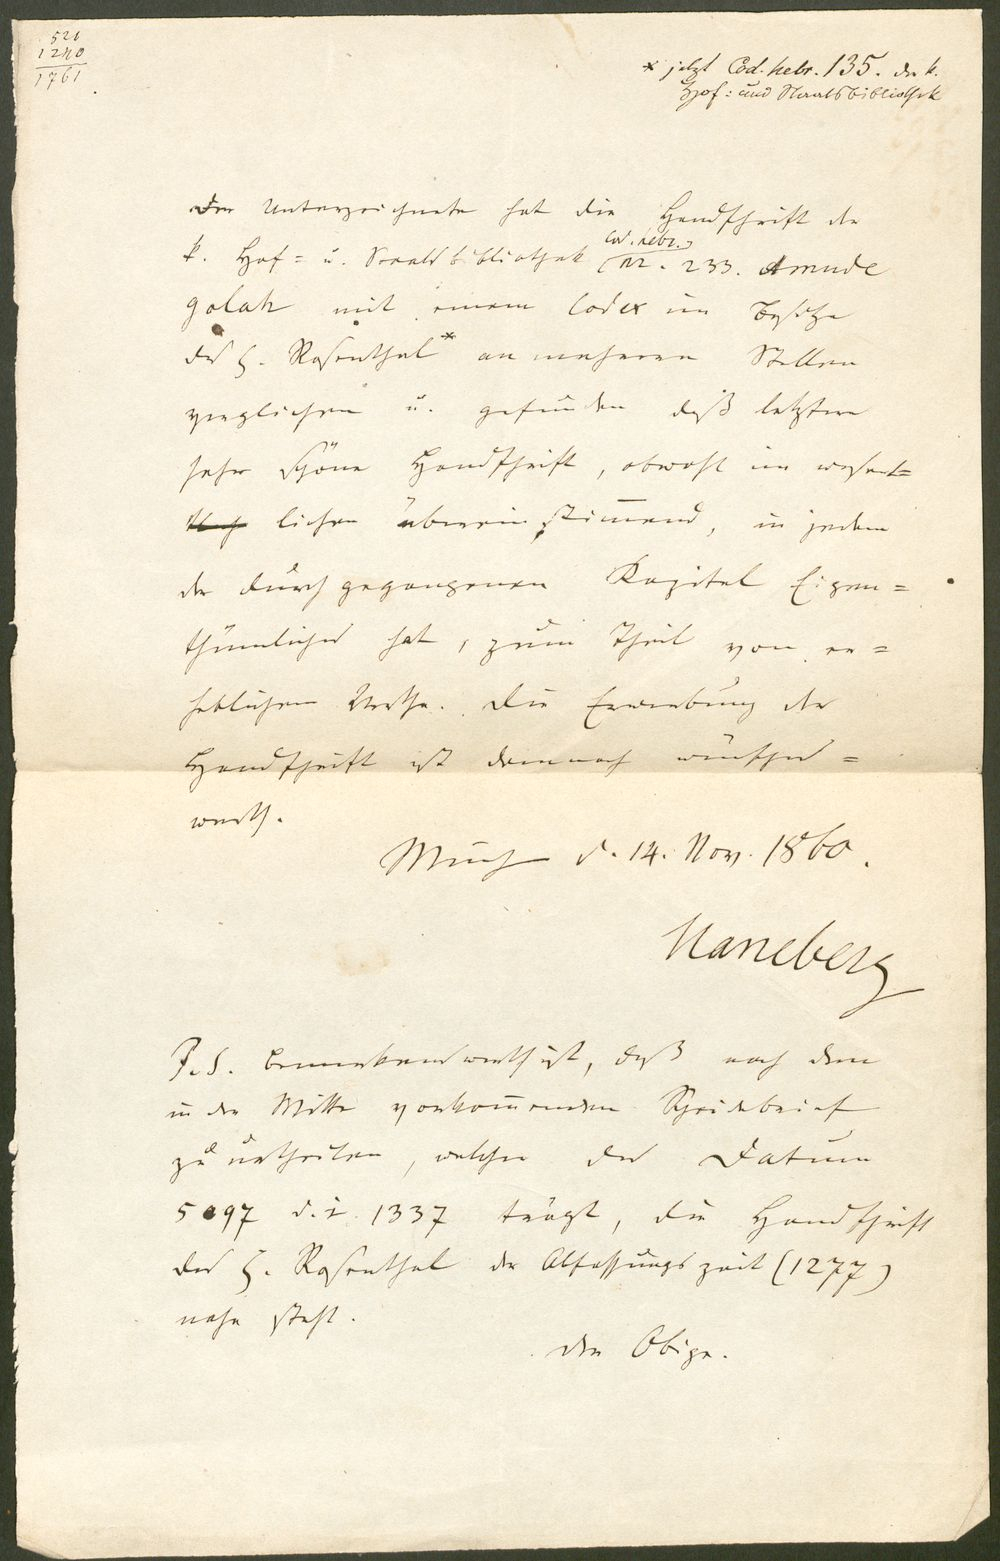 521
1240
1761
* jetzt Cod. hebr. 135. der k.
Hof- und Staatsbibliothek
Der Unterzeichnete hat die Handschrift der
k. Hof = u. Staatsbibliothek (Cod. hebr.) Nr. 233. Amude
golah mit einem Codex im Besitze
des H. Rosenthal * an mehreren Stellen
verglichen u. gefunden daß letztere
sehr schöne Handschrift, obwohl im wesent=
lichen übereinstimmend, in jedem
der durchgegangenen Kapitel Eigen=
thümliches hat, zum Theil von er=
heblichem Werthe. Die Erwerbung der
Handschrift ist demnach wünschens=
werth.
Münch d. 14. Nov. 1860.
Haneberg
P.S. Bemerkenswerth ist, daß nach dem
in der Mitte vorkommenden Scheidebrief
zu urtheilen, welcher das Datum
5097 d. i. 1337 trägt, die Handschrift
des H. Rosenthal der Abfassungszeit (1277)
nahe steht.
Der Obige.